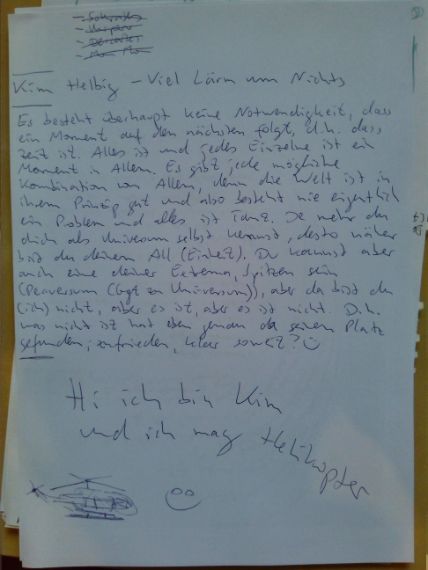 Kim Helbig – Viel Lärm um Nichts
Es besteht überhaupt keine Notwendigkeit, dass
ein Moment auf den nächsten folgt, d.h. dass
Zeit ist. Alles ist und jedes Einzelne ist ein
Moment in Allem. Es gibt jede mögliche
Kombination von Allem, denn die Welt ist in
ihrem Prinzip gut und also besteht nie eigentlich
ein Problem und alles ist Tanz. Je mehr du
dich als Universum selbst kennst, desto näher
bist du deinem All (Einheit). Du kannst aber
auch eine deiner Extrema, Spitzen sein
(Peaversum (Ggt. zu Universum)), aber da bist du
(ich) nicht, aber es ist, aber es ist nicht. D.h.
was nicht ist hat eben genau da seinen Platz
gefunden, zufrieden, klar soweit? ☺
Hi ich bin Kim
und ich mag Helikopter